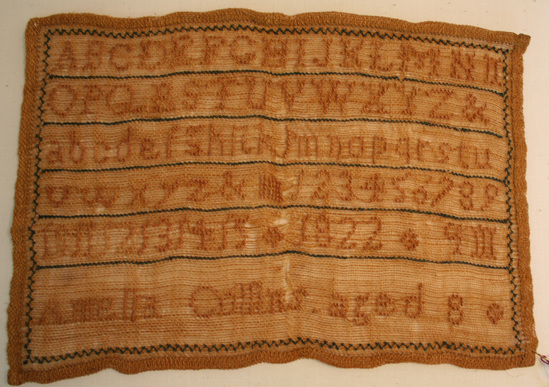 ABCDEFGHIJKLMN
OPQRSTUVWXYZ&
abcdefghiklmnopqrstu
vwxyz& 123456789
1822
Amelia Collins.aged 8